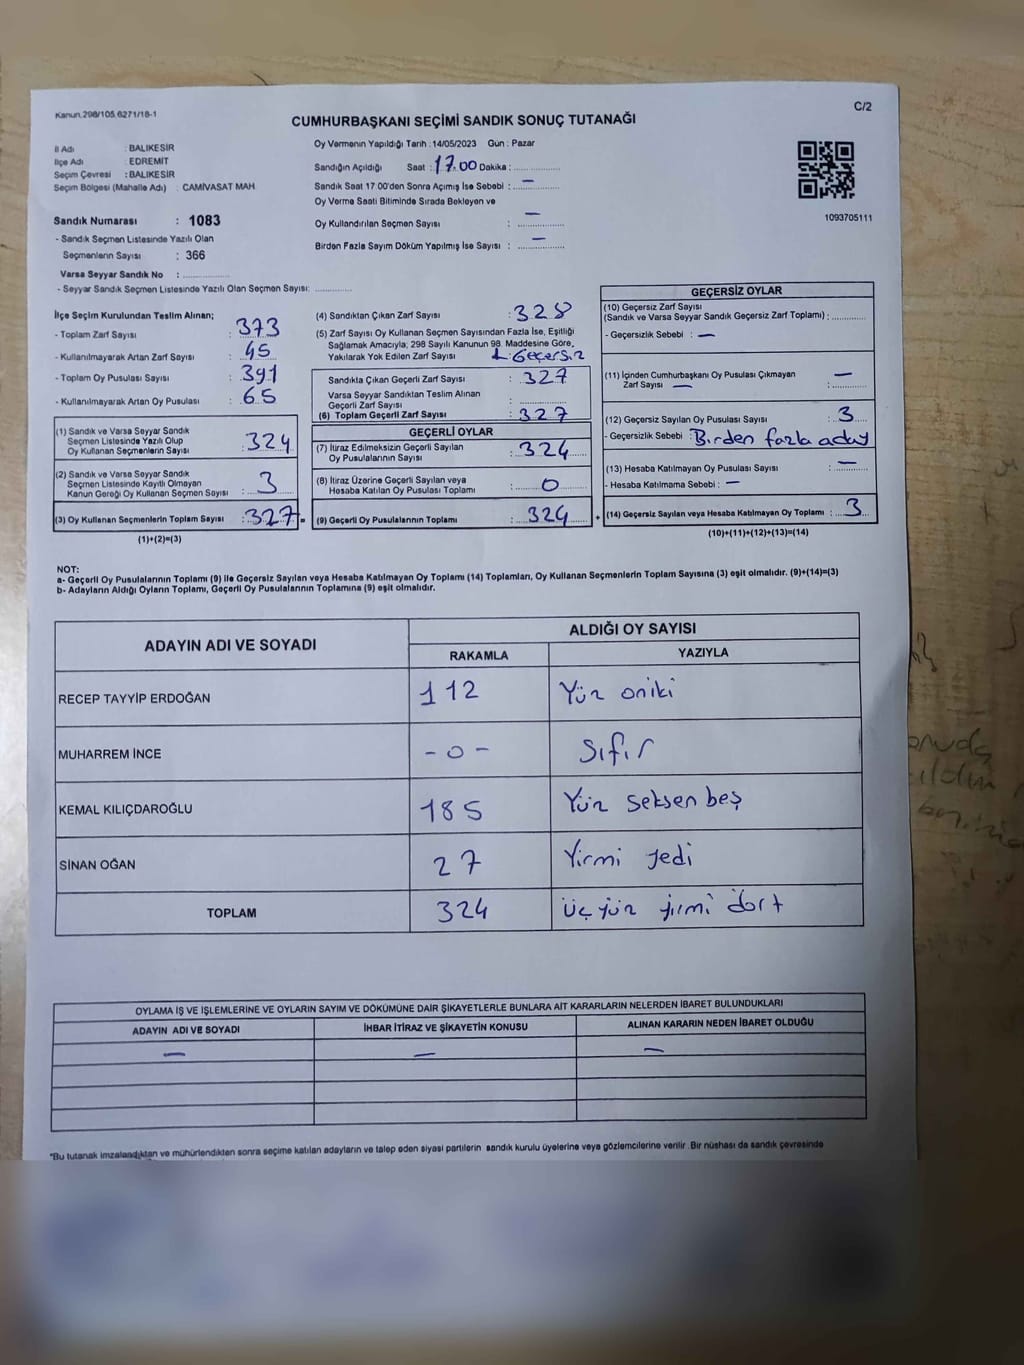 Kanun.298/105,6271/18-1
C/2
CUMHURBAŞKANI SEÇİMİ SANDIK SONUÇ TUTANAĞI
İl Adı : BALIKESİR
İlçe Adı : EDREMİT
Seçim Çevresi : BALIKESİR
Seçim Bölgesi (Mahalle Adı) : CAMİVASAT MAH
Sandık Numarası : 1083
- Sandık Seçmen Listesinde Yazılı Olan
Seçmenlerin Sayısı : 366
Varsa Seyyar Sandık No : ..............
- Seyyar Sandık Seçmen Listesinde Yazılı Olan Seçmen Sayısı: ............
Oy Vermenin Yapıldığı Tarih : 14/05/2023 Gün : Pazar
Sandığın Açıldığı Saat : 17.00 Dakika : ..............
Sandık Saat 17.00'den Sonra Açımış İse Sebebi : —
Oy Verme Saati Bitiminde Sırada Bekleyen ve
Oy Kullandırılan Seçmen Sayısı : —
Birden Fazla Sayım Döküm Yapılmış İse Sayısı : —
1093705111
İlçe Seçim Kurulundan Teslim Alınan;
- Toplam Zarf Sayısı : 373
- Kullanılmayarak Artan Zarf Sayısı : 45
- Toplam Oy Pusulası Sayısı : 391
- Kullanılmayarak Artan Oy Pusulası : 65
(1) Sandık ve Varsa Seyyar Sandık
Seçmen Listesinde Yazılı Olup
Oy Kullanan Seçmenlerin Sayısı : 324
(2) Sandık ve Varsa Seyyar Sandık
Seçmen Listesinde Kayıtlı Olmayan
Kanun Gereği Oy Kullanan Seçmen Sayısı : 3
(3) Oy Kullanan Seçmenlerin Toplam Sayısı : 327 =
(1)+(2)=(3)
(4) Sandıktan Çıkan Zarf Sayısı : 328
(5) Zarf Sayısı Oy Kullanan Seçmen Sayısından Fazla İse, Eşitliği
Sağlamak Amacıyla; 298 Sayılı Kanunun 98. Maddesine Göre,
Yakılarak Yok Edilen Zarf Sayısı 1 Geçersiz
Sandıkta Çıkan Geçerli Zarf Sayısı : 327
Varsa Seyyar Sandıktan Teslim Alınan
Geçerli Zarf Sayısı : ..............
(6) Toplam Geçerli Zarf Sayısı : 327
GEÇERLİ OYLAR
(7) İtiraz Edilmeksizin Geçerli Sayılan
Oy Pusulalarının Sayısı : 324
(8) İtiraz Üzerine Geçerli Sayılan veya
Hesaba Katılan Oy Pusulası Toplamı : 0
(9) Geçerli Oy Pusulalarının Toplamı : 324 +
GEÇERSİZ OYLAR
(10) Geçersiz Zarf Sayısı
(Sandık ve Varsa Seyyar Sandık Geçersiz Zarf Toplamı) : ............
- Geçersizlik Sebebi : —
(11) İçinden Cumhurbaşkanı Oy Pusulası Çıkmayan
Zarf Sayısı — : —
(12) Geçersiz Sayılan Oy Pusulası Sayısı : 3
- Geçersizlik Sebebi : Birden fazla aday
(13) Hesaba Katılmayan Oy Pusulası Sayısı : —
- Hesaba Katılmama Sebebi : —
(14) Geçersiz Sayılan veya Hesaba Katılmayan Oy Toplamı : 3
(10)+(11)+(12)+(13)=(14)
NOT:
a- Geçerli Oy Pusulalarının Toplamı (9) ile Geçersiz Sayılan veya Hesaba Katılmayan Oy Toplamı (14) Toplamları, Oy Kullanan Seçmenlerin Toplam Sayısına (3) eşit olmalıdır. (9)+(14)=(3)
b- Adayların Aldığı Oyların Toplamı, Geçerli Oy Pusulalarının Toplamına (9) eşit olmalıdır.
ADAYIN ADI VE SOYADI
ALDIĞI OY SAYISI
RAKAMLA YAZIYLA
RECEP TAYYİP ERDOĞAN 112 Yüz oniki
MUHARREM İNCE - 0 - Sıfır
KEMAL KILIÇDAROĞLU 185 Yüz seksen beş
SİNAN OĞAN 27 Yirmi yedi
TOPLAM 324 Üç yüz yirmi dört
OYLAMA İŞ VE İŞLEMLERİNE VE OYLARIN SAYIM VE DÖKÜMÜNE DAİR ŞİKAYETLERLE BUNLARA AİT KARARLARIN NELERDEN İBARET BULUNDUKLARI
ADAYIN ADI VE SOYADI İHBAR İTİRAZ VE ŞİKAYETİN KONUSU ALINAN KARARIN NEDEN İBARET OLDUĞU
— — —
*Bu tutanak imzalandıktan ve mühürlendikten sonra seçime katılan adayların ve talep eden siyasi partilerin sandık kurulu üyelerine veya gözlemcilerine verilir. Bir nüshası da sandık çevresinde